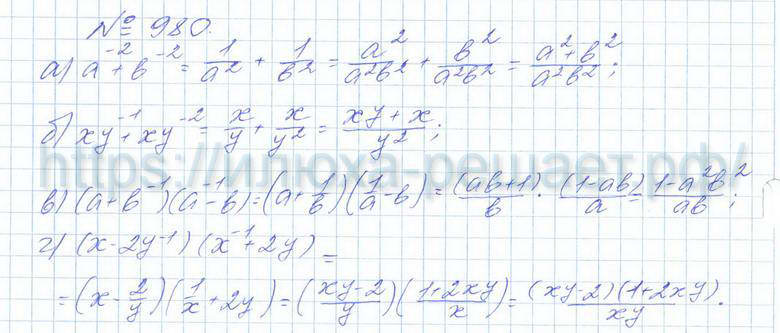 № 980.
а) a⁻² + b⁻² = 1/a² + 1/b² = a²/a²b² + b²/a²b² = a²+b²/a²b²;
б) xy⁻¹ + xy⁻² = x/y + x/y² = xy+x/y²;
https://илюха-решает.рф/
в) (a+b⁻¹)(a⁻¹-b) = (a+1/b)(1/a-b) = (ab+1)/b · (1-ab)/a = 1-a²b²/ab;
г) (x-2y⁻¹)(x⁻¹+2y) =
= (x-2/y)(1/x+2y) = (xy-2/y)(1+2xy/x) = (xy-2)(1+2xy)/xy.